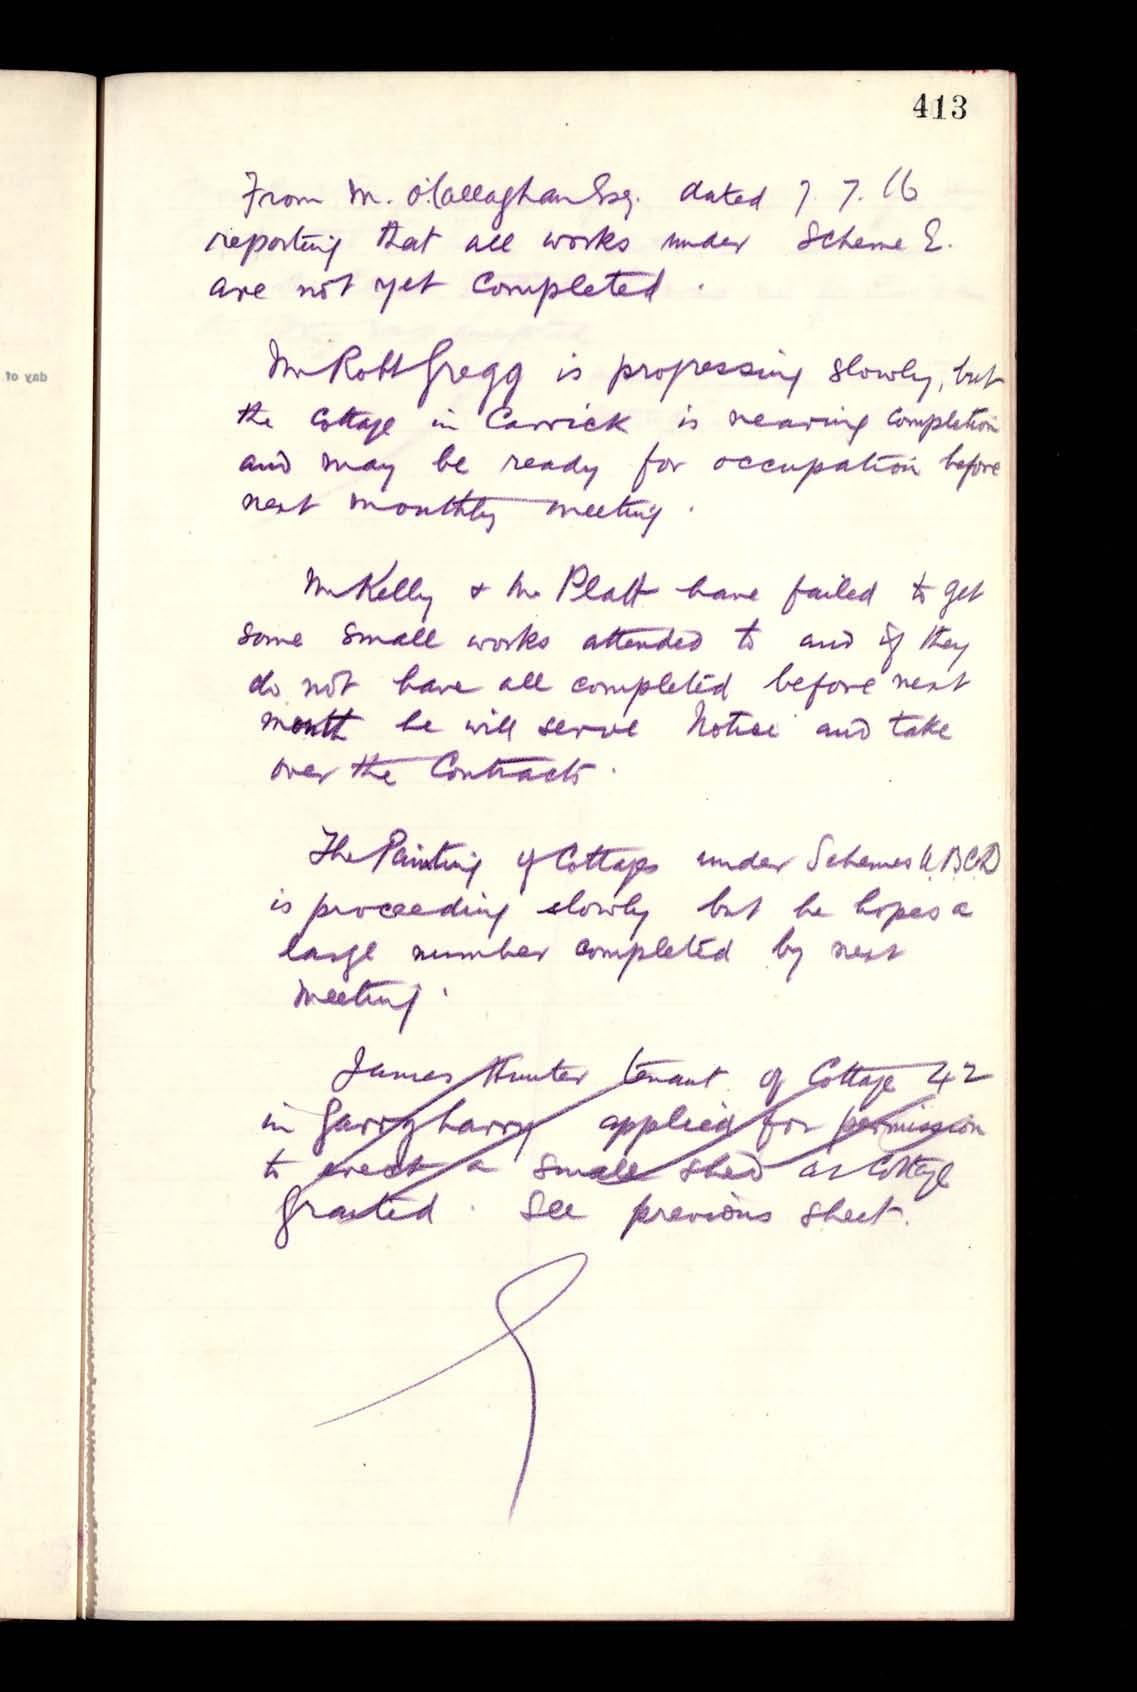 413
From M. O'Callaghan Esq. dated 7.7.16
reporting that all works under Scheme E.
are not yet Completed.
Mr Robt Gregg is progressing slowly, but
the Cottage in Carrick is nearing Completion
and may be ready for occupation before
next monthly meeting.
day of
Mr Kelly & Mr Platt have failed to get
some small works attended to and if they
do not have all completed before next
month he will serve Notice and take
over the Contracts.
The Painting of Cottages under Schemes A.B.C.D
is proceeding slowly but he hopes a
large number completed by next
Meeting.
James Hunter tenant of Cottage 42
in Garryharry applied for permission
to erect a small shed at Cottage
Granted. See previous sheet.